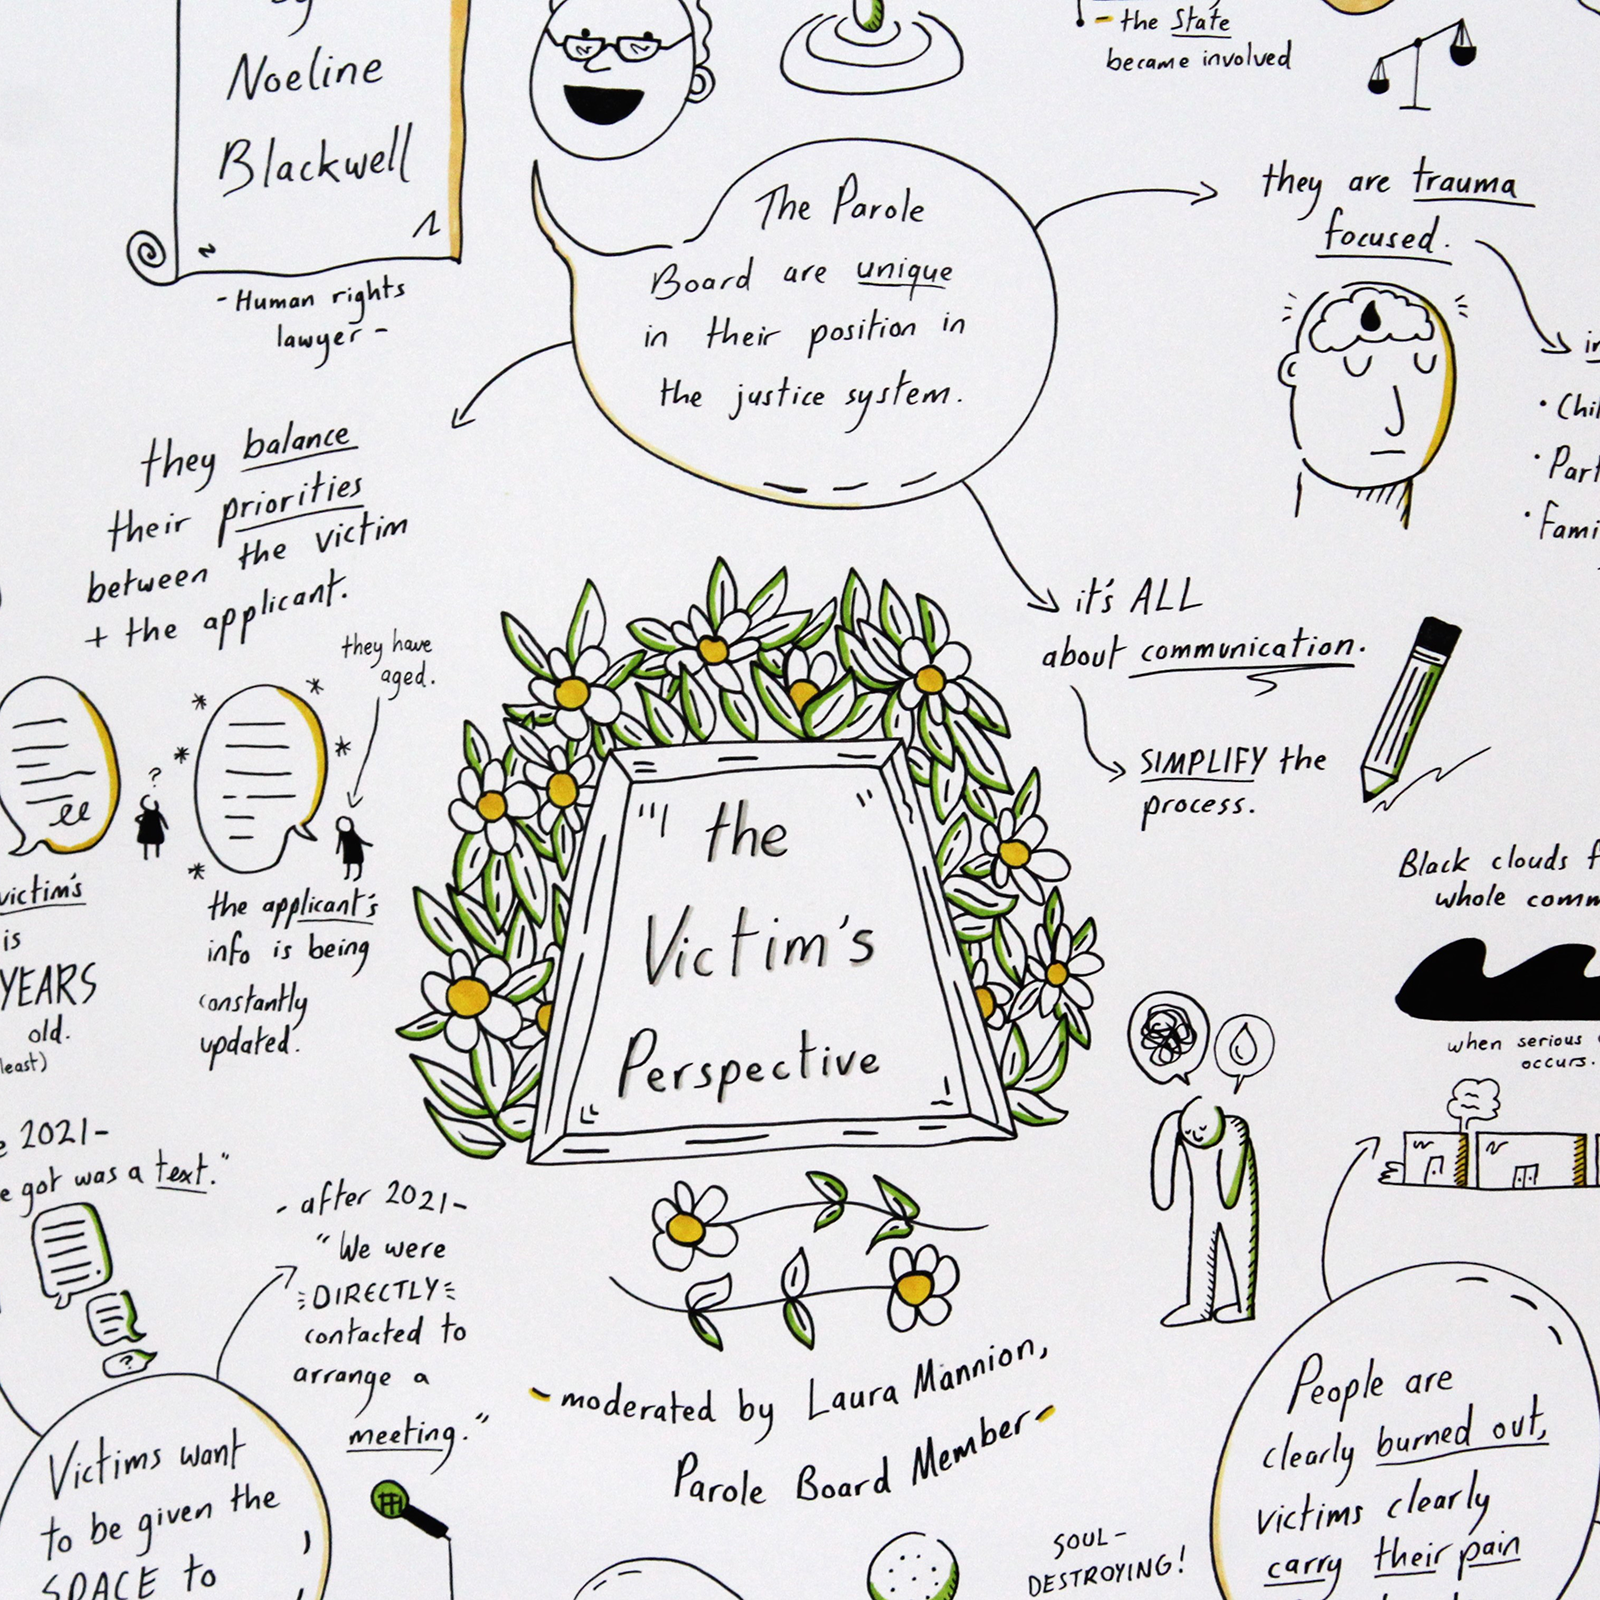 by
Noeline
Blackwell
- Human rights
lawyer -
- the State
became involved
The Parole
Board are unique
in their position in
the justice system.
they are trauma
focused.
they balance
their priorities
between the victim
+ the applicant.
it's ALL
about communication.
SIMPLIFY the
process.
they have
aged.
?
victim's
is
YEARS
old.
least)
the applicant's
info is being
constantly
updated.
"the
Victim's
Perspective"
Black clouds
whole
when serious
occurs.
2021-
got was a text."
?
- after 2021-
"We were
DIRECTLY
contacted to
arrange a
meeting."
- moderated by Laura Mannion,
Parole Board Member -
Victims want
to be given the
SPACE to
SOUL-
DESTROYING!
People are
clearly burned out,
victims clearly
carry their pain